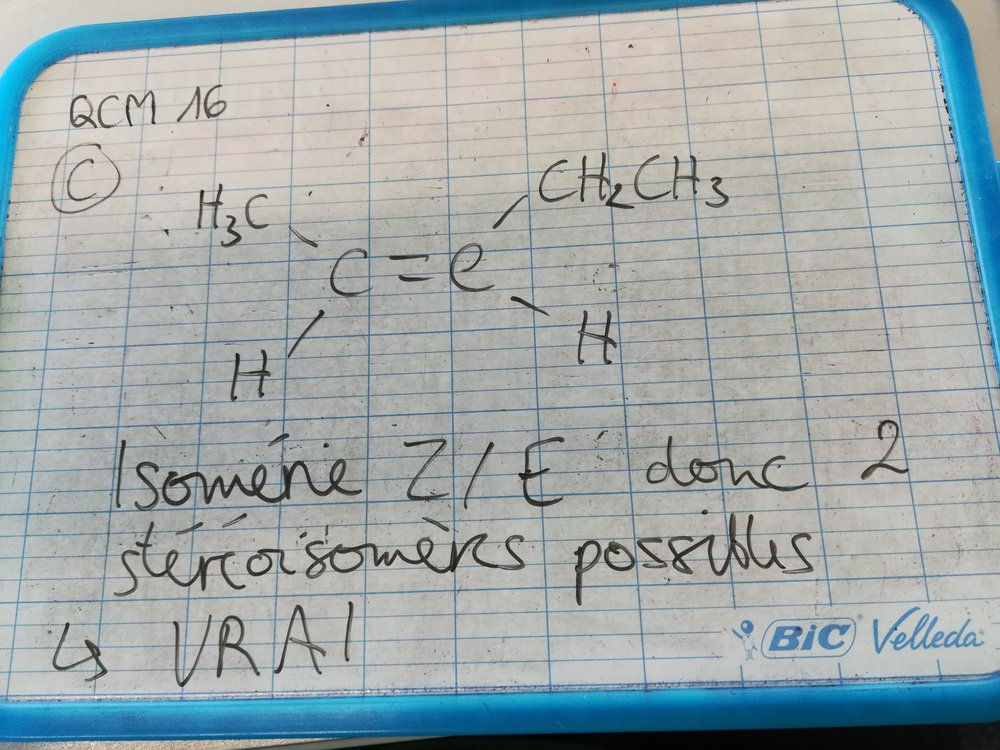 QCM 16
C
H3C CH2CH3
C = C
H H
Isomérie Z/E donc 2
stéréoisomères possibles
↳ VRAI
BiC Velleda